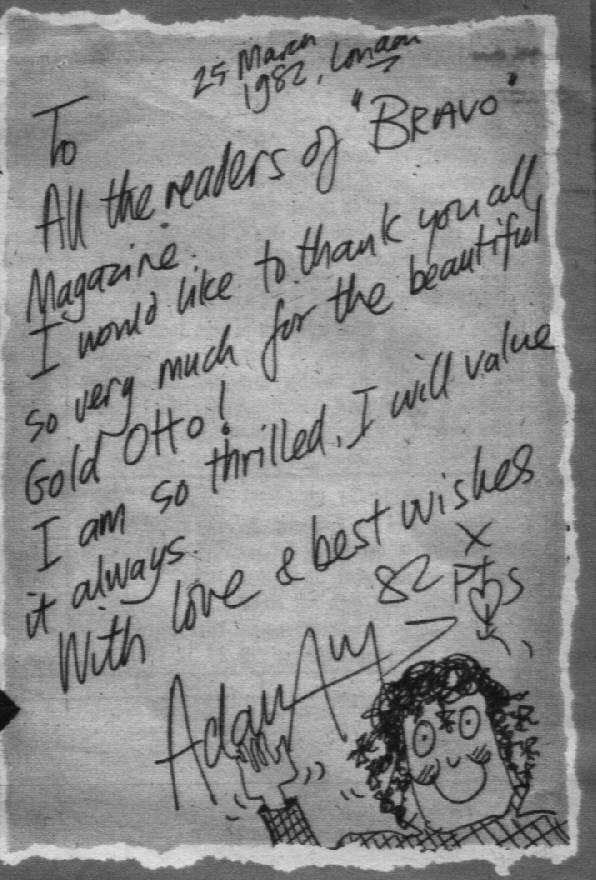 25 March
1982, London
To
All the readers of "BRAVO"
Magazine.
I would like to thank you all
so very much for the beautiful
Gold Otto!
I am so thrilled. I will value
it always.
With love & best wishes
X
82
Adam Ant